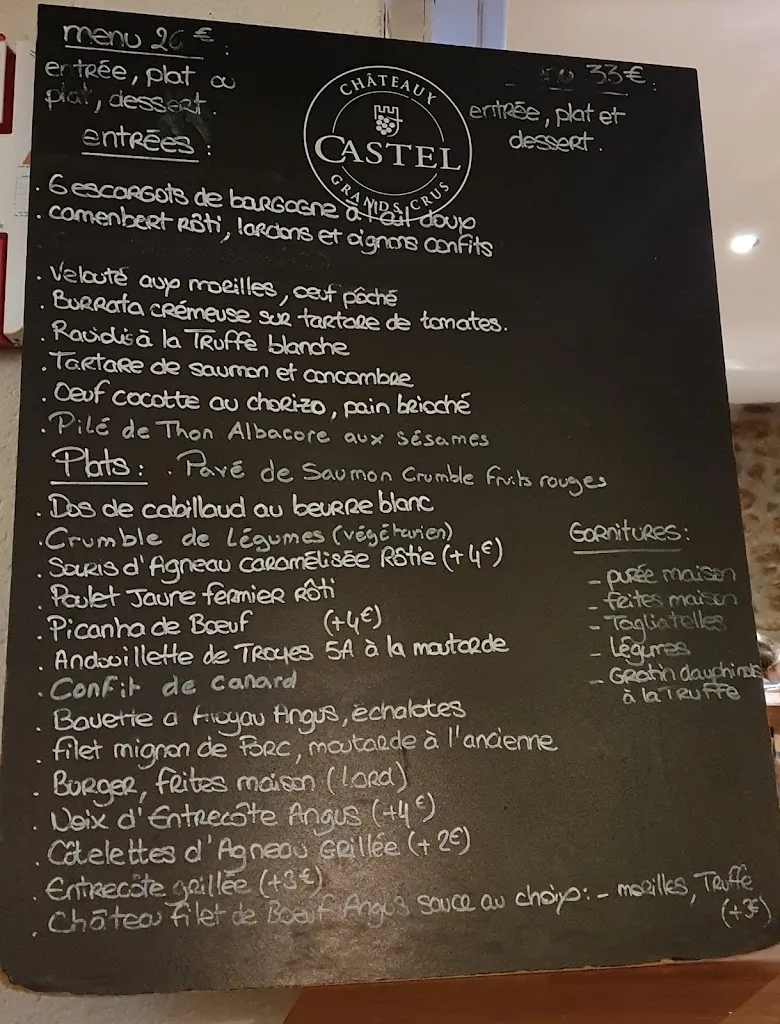 menu 26 €:
entrée, plat ou
plat, dessert.
33€:
entrée, plat et
dessert.
CHÂTEAUX
CASTEL
GRANDS CRUS
entrées:
. 6 escargots de bourgogne à l'ail doux
. camembert rôti, lardons et oignons confits
. Velouté aux morilles, oeuf pôché
. Burrata crémeuse sur tartare de tomates.
. Raviolis à la Truffe blanche
. Tartare de saumon et concombre
. Oeuf cocotte au chorizo, pain brioché
. Pilé de Thon Albacore aux sésames
Plats: . Pavé de Saumon Crumble fruits rouges
. Dos de cabillaud au beurre blanc
. Crumble de Légumes (végétarien)
. Souris d'Agneau caramélisée Rôtie (+4€)
. Poulet Jaune fermier rôti
. Picanha de Boeuf (+4€)
. Andouillette de Troyes 5A à la moutarde
. Confit de canard
. Bavette d'Aloyau Angus, échalotes
. filet mignon de Porc, moutarde à l'ancienne
. Burger, frites maison (Lard)
. Noix d'Entrecôte Angus (+4€)
. Côtelettes d'Agneau Grillée (+2€)
. Entrecôte grillée (+3€)
. Château filet de Boeuf Angus sauce au choix: - morilles, Truffe
(+3€)
Garnitures:
- purée maison
- frites maison
- Tagliatelles
- Légumes
- Gratin dauphinois
à la Truffe